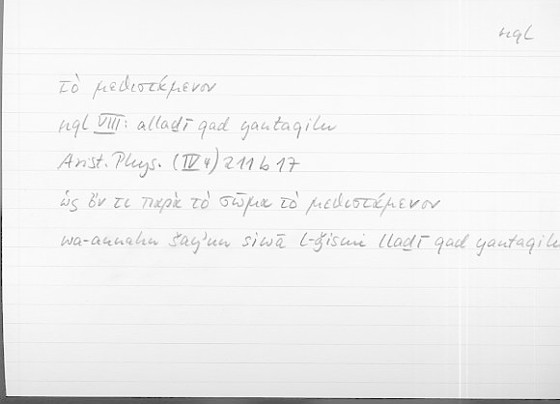 nql
τὸ μεθιστάμενον
nql VIII: allaḏī qad yantaqilu
Arist. Phys. (IV 4) 211 b 17
ὡς ὄν τι παρὰ τὸ σῶμα τὸ μεθιστάμενον
wa-annahu šayʾun siwā l-ǧismi lladī qad yantaqilu